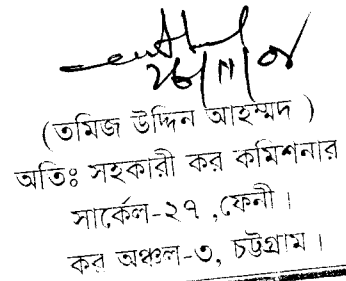 ২৮/১১/০৮
(তমিজ উদ্দিন আহম্মদ )
অতিঃ সহকারী কর কমিশনার
সার্কেল-২৭ ,ফেনী ।
কর অঞ্চল-৩, চট্টগ্রাম ।